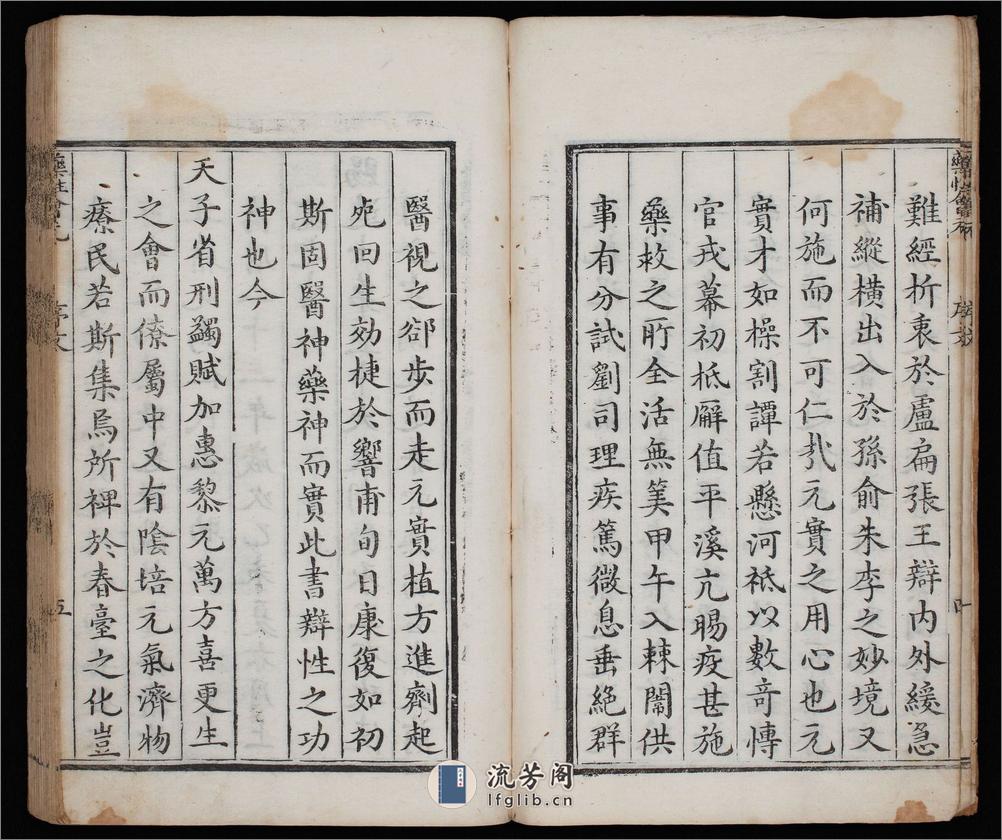 難經折衷於盧扁張王辯內外緩急
補縱橫出入於孫俞朱李之妙境又
何施而不可仁㢤元實之用心也元
實才如操割譚若懸河祗以數竒慱
官戎幕初抵廨值平溪亢暘疫甚施
藥救之所全活無筭甲午入棘闈供
事有分試劉司理疾篤微息垂絕群
醫視之郤步而走元實植方進劑起
死回生効捷於響甫旬日康復如初
斯固醫神藥神而實此書辯性之功
神也今
天子省刑蠲賦加惠黎元萬方喜更生
之會而僚屬中又有陰培元氣濟物
療民若斯集焉所裨於春臺之化豈
藥性會元
序文
五
流芳阁
lfglib.cn